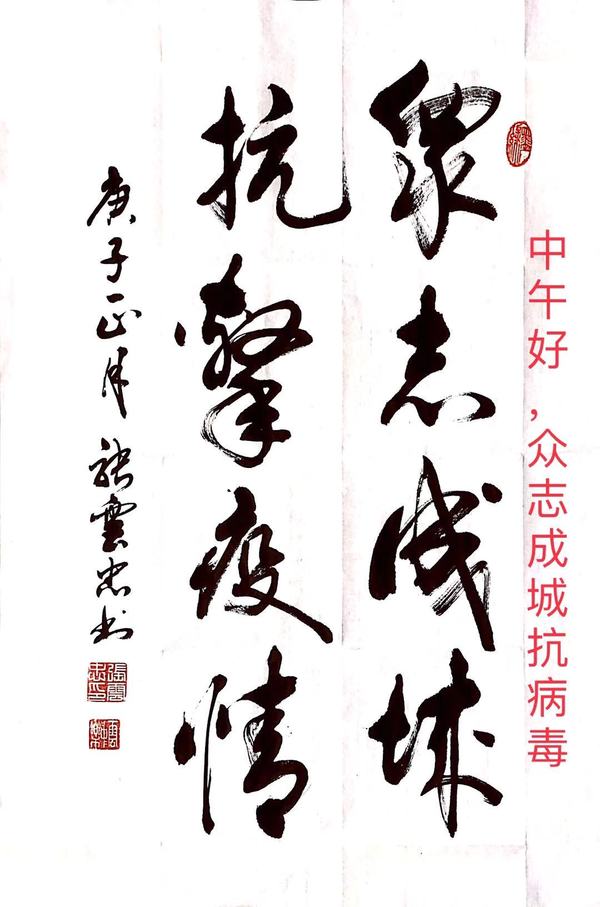 中午好,众志成城抗病毒
眾志成城
抗擊疫情
庚子正月張雲忠书
張雲忠印